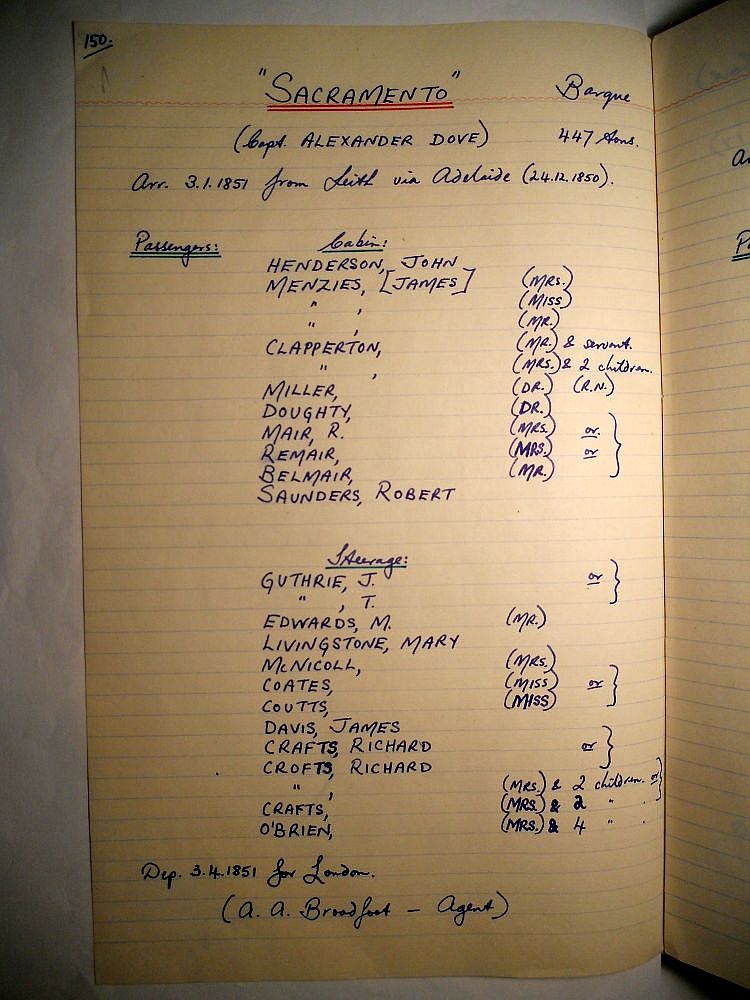 150.
"SACRAMENTO" Barque
(Capt. ALEXANDER DOVE) 447 tons.
Arr. 3.1.1851 from Leith via Adelaide (24.12.1850).
Passengers: Cabin:
HENDERSON, JOHN
MENZIES, [JAMES] (MRS.)
" , (MISS)
" , (MR.)
CLAPPERTON, (MR.) & servant.
" , (MRS.) & 2 children.
MILLER, (DR.) (R.N.)
DOUGHTY, (DR.)
MAIR, R. (MRS.) or. }
REMAIR, (MRS.) or
BELMAIR, (MR.)
SAUNDERS, ROBERT
Steerage:
GUTHRIE, J. or }
" , T.
EDWARDS, M. (MR.)
LIVINGSTONE, MARY
McNICOLL, (MRS.)
COATES, (MISS) or }
COUTTS, (MISS)
DAVIS, JAMES
CRAFTS, RICHARD or }
CROFTS, RICHARD
" , (MRS.) & 2 children. or }
CRAFTS, (MRS.) & 2 " .
O'BRIEN, (MRS.) & 4 " .
Dep. 3.4.1851 for London.
(A. A. Broadfoot - Agent)